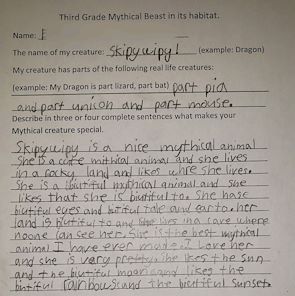 Third Grade Mythical Beast in its habitat.
Name: E
The name of my creature: Skipyuipy! (example: Dragon)
My creature has parts of the following real life creatures:
(example: My Dragon is part lizard, part bat) part pig
and part unison and part mouse.
Describe in three or four complete sentences what makes your
Mythical creature special.
Skipyuipy is a nice mythical animal
She is a cute mithical animal and she lives
in a rocky land and likes whre she lives.
She is a biutiful mythical animal and she
likes that she is biutiful to. She hasc
biutiful eyes and biutful tale and ear to. her
land is biutiful to and she lives in a cave where
noone can see her. She is the best mythical
animal I have ever made. I Love her
and she is vary pretty. she likes the sun
and the biutiful moon and likes the
biutiful rainbows and the biutiful sunset.